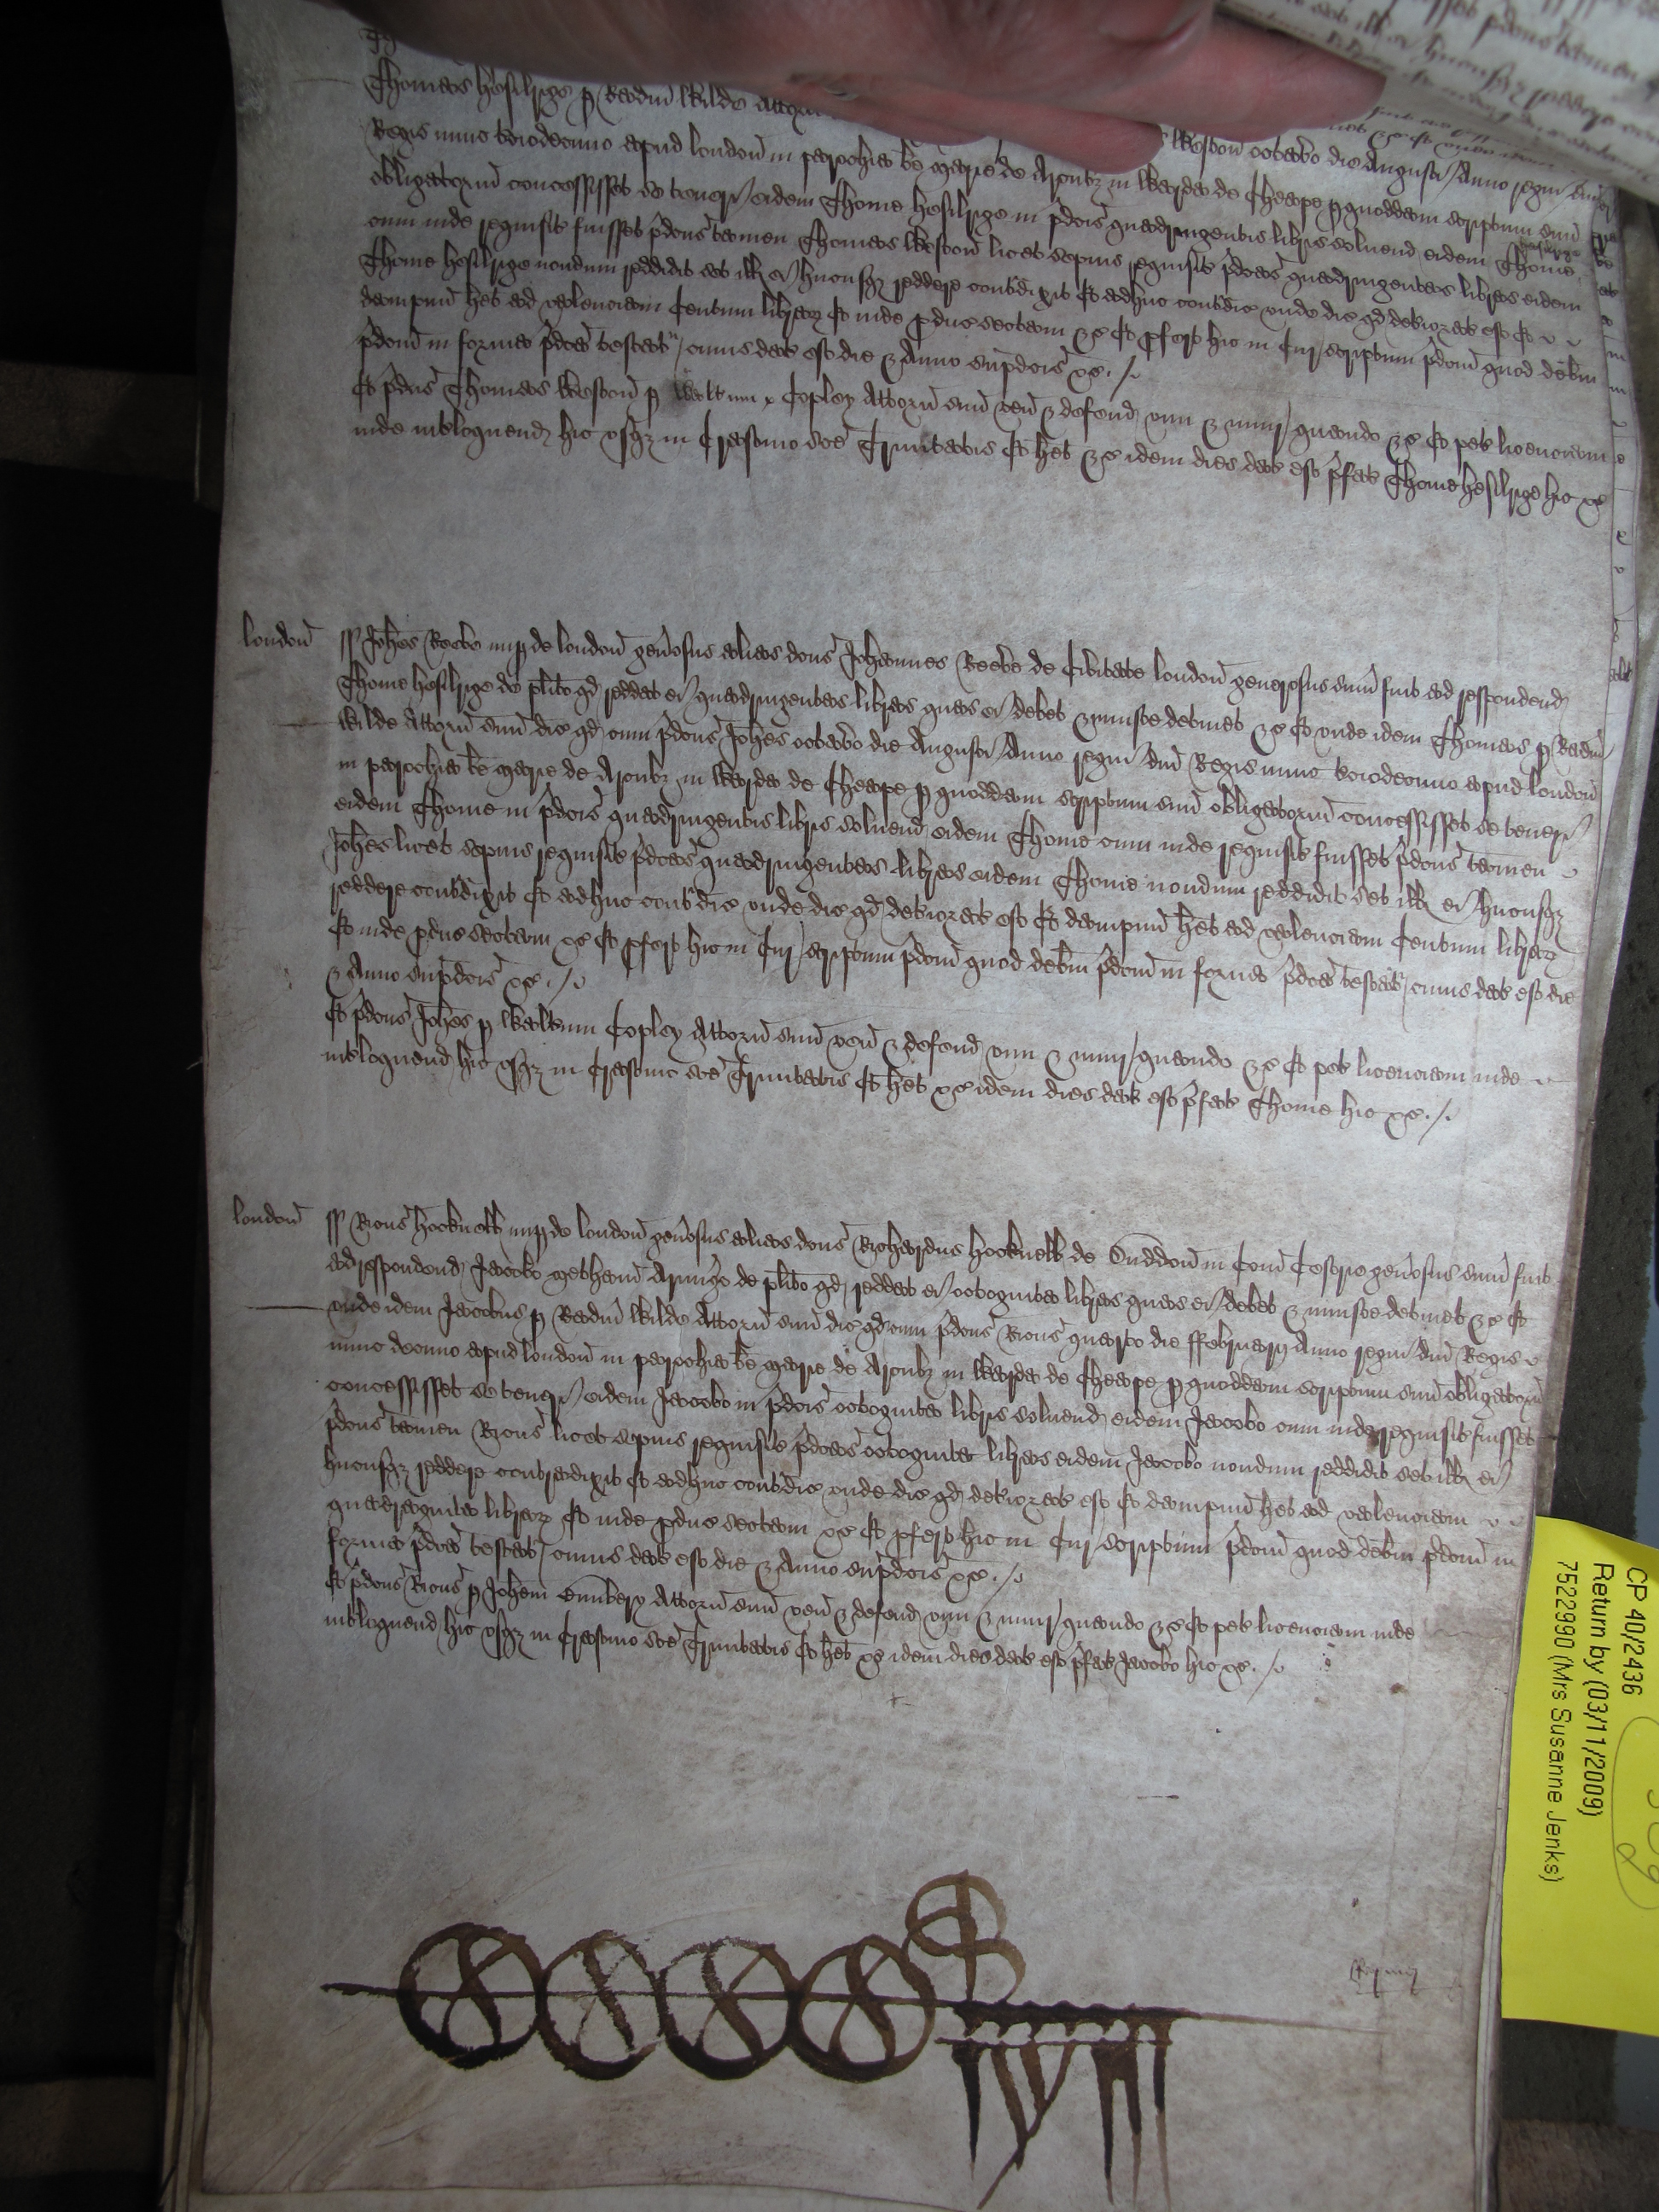 Thomas hesilrige p Radm Wilde Attorn
Regis nunc tciodecimo apud london in parochia be marie de Arcubz in Warda de Cheape p quoddam scriptum suu
obligatoriu concessisset se teneri eidem Thome hesilrige in pdcis quadringentis libris soluend eidem Thome
cum inde requisit fuisset pdcus tamen Thomas Weston licet sepius requisit pdcas quadringentas libras eidem
Thome hesilrige nondum reddidit set ill ei hucusqz reddere contdixit Et adhuc contdic unde dic qd deteriorat est Et
dampnu het ad valenciam Centum librar Et inde pduc sectam &c Et pfert hic in Cur scriptum pdcm quod debm
pdcm in forma pdca testat cuius dat est die & Anno supdcis &c ./
Et pdcus Thomas Weston p Copley Attorn suu ven & defend vim & iniur quando &c Et pet licenciam
inde intloquend hic usqz in Crastino sce Trinitatis Et het &c idem dies dat est pfat Thome hesilrige hic &c
london
ss Johes Reede nup de london genosus alias dcus Johannes Reede de Civitate london generosus sum fuit ad respondend
Thome hesilrige de plito qd reddat ei quadringentas libras quas ei debet & iniuste detinet &c Et unde idem Thomas p Radm
Wilde Attorn suu dic qd cum pdcus Johes octavo die Augusti Anno regni dni Regis nunc tciodecimo apud london
in parochia be marie de Arcubz in Warda de Cheape p quoddam scriptum suu obligatoriu concessisset se teneri
eidem Thome in pdcis quadringentis libris soluend eidem Thome cum inde requisit fuisset pdcus tamen
Johes licet sepius requisit pdcas quadringentas libras eidem Thome nondum reddidit set ill ei hucusqz
reddere contdixit Et adhuc contdic unde dic qd deteriorat est Et dampnu het ad valenciam Centum librar
Et inde pduc sectam &c Et pfert hic in Cur scriptum pdcm quod debm pdcm in forma pdca testat cuius dat est die
& Anno supdcis &c ./
Et pdcus Johes p Waltum Copley Attorn suu ven & defend vim & iniur quando &c Et pet licenciam inde
intloquend hic usqz in Crastino sce Trinitatis Et het &c idem dies dat est pfat Thome hic &c ./
london
ss Ricus hocknell nup de london genosus alias dcus Richardus hocknell de Duddon in Com Cestrie genosus sum fuit
ad respondend Jacobo metham Armigo de plito qd reddat ei octoginta libras quas ei debet & iniuste detinet &c Et
unde idem Jacobus p Radm Wilde Attorn suu dic qd cum pdcus Ricus quarto die ffebruarij Anno regni dni Regis
nunc decimo apud london in parochia be marie de Arcubz in Warda de Cheape p quoddam scriptum suu obligatoriu
concessisset se teneri eidem Jacobo in pdcis octoginta libris soluend eidem Jacobo cum inde requisit fuisset
pdcus tamen Ricus licet sepius requisit pdcas octoginta libras eidem Jacobo nondum reddidit set ill ei
hucusqz reddere contradixit Et adhuc contdic unde dic qd deteriorat est Et dampnu het ad valenciam
quadraginta librar Et inde pduc sectam &c Et pfert hic in Cur scriptum pdcm quod debm pdcm in
forma pdca testat cuius dat est die & Anno supdcis &c ./
Et pdcus Ricus p Johem Attorn suu ven & defend vim & iniur quando &c Et pet licenciam inde
intloquend hic usqz in Crastino sce Trinitatis Et het &c idem dies dat est pfat Jacobo hic &c ./
CP 40/2436
Return by (03/11/2009)
7522990 (Mrs Susanne Jenks)